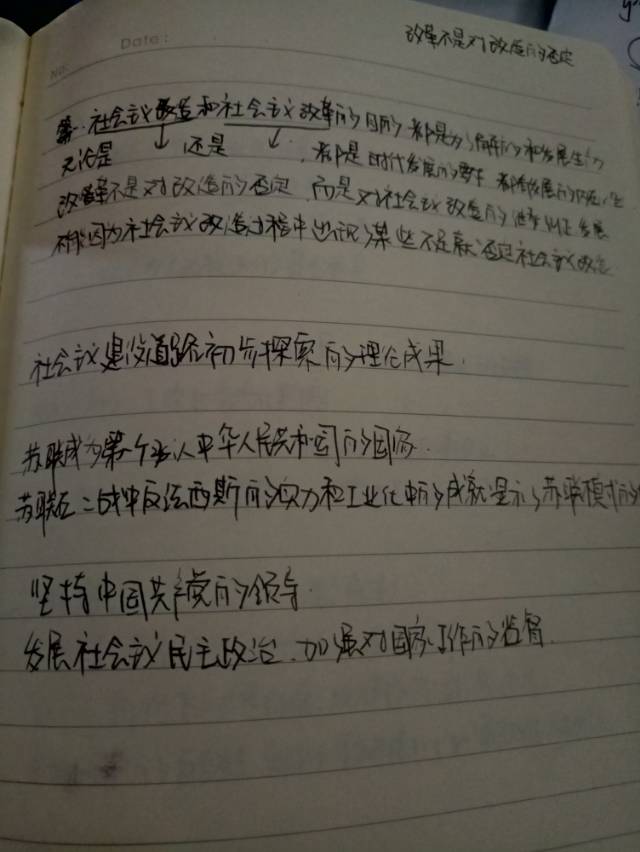 改革不是对改造的否定
No:
Date:
第一社会主义改造和社会主义改革的目的都是为了解放和发展生力
无论是 还是 都是时代发展的要求 都是发展的
改革不是对改造的否定 而是对社会主义改造的 发展
不能因为社会主义改造过程中出现了某些不足就否定社会主义改造
社会主义建设道路初步探索的理论成果.
苏联成为第一个承认中华人民共和国的国家.
苏联在二战中反法西斯的实力和工业化中的成就显示了苏联模式的
坚持中国共产党的领导.
发展社会主义民主政治.加强对国家工作的监督.